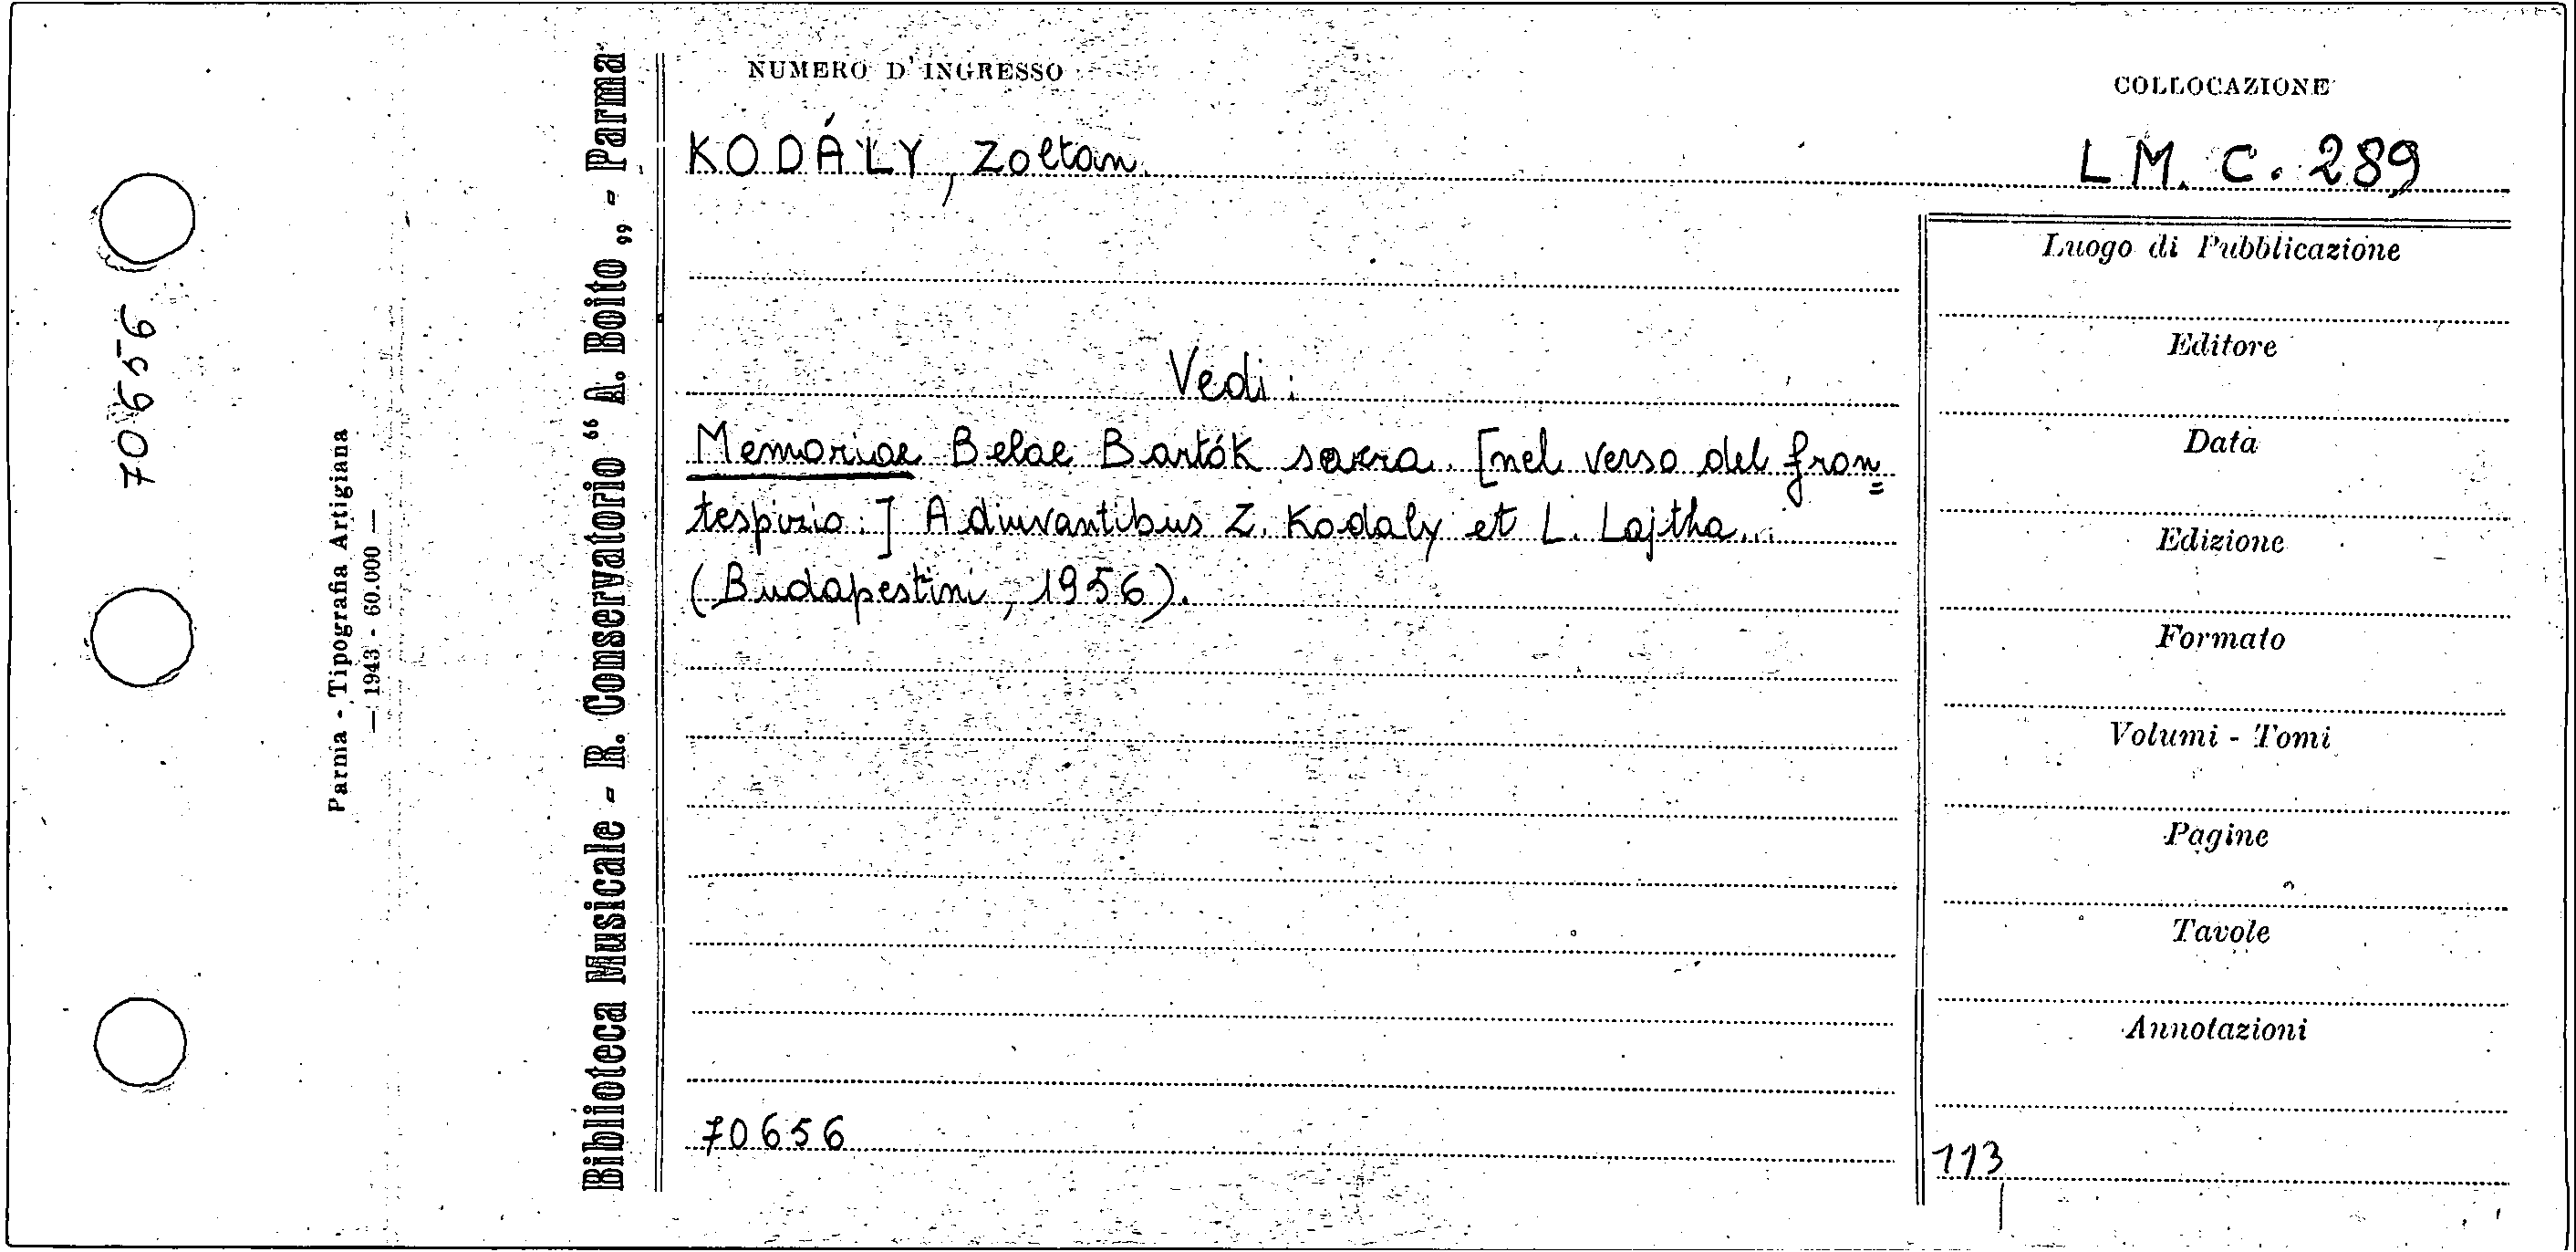 NUMERO D'INGRESSO
COLLOCAZIONE
KODÁLY, Zoltan
LM. C. 289
Vedi:
Memoriae Belae Bartók sacra. [nel verso del fron=
tespizio:] Adiuvantibus Z. Kodaly et L. Lajtha...
(Budapestini, 1956).
70656
Luogo di Pubblicazione
Editore
Data
Edizione
Formato
Volumi - Tomi
Pagine
Tavole
Annotazioni
113
Biblioteca Musicale - R. Conservatorio “ A. Boito „ - Parma
Parma - Tipografia Artigiana
— 1943 - 60.000 —
70656